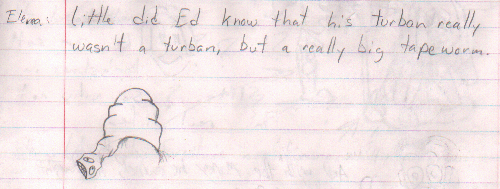 Elena: Little did Ed know that his turban really
wasn't a turban, but a really big tapeworm.